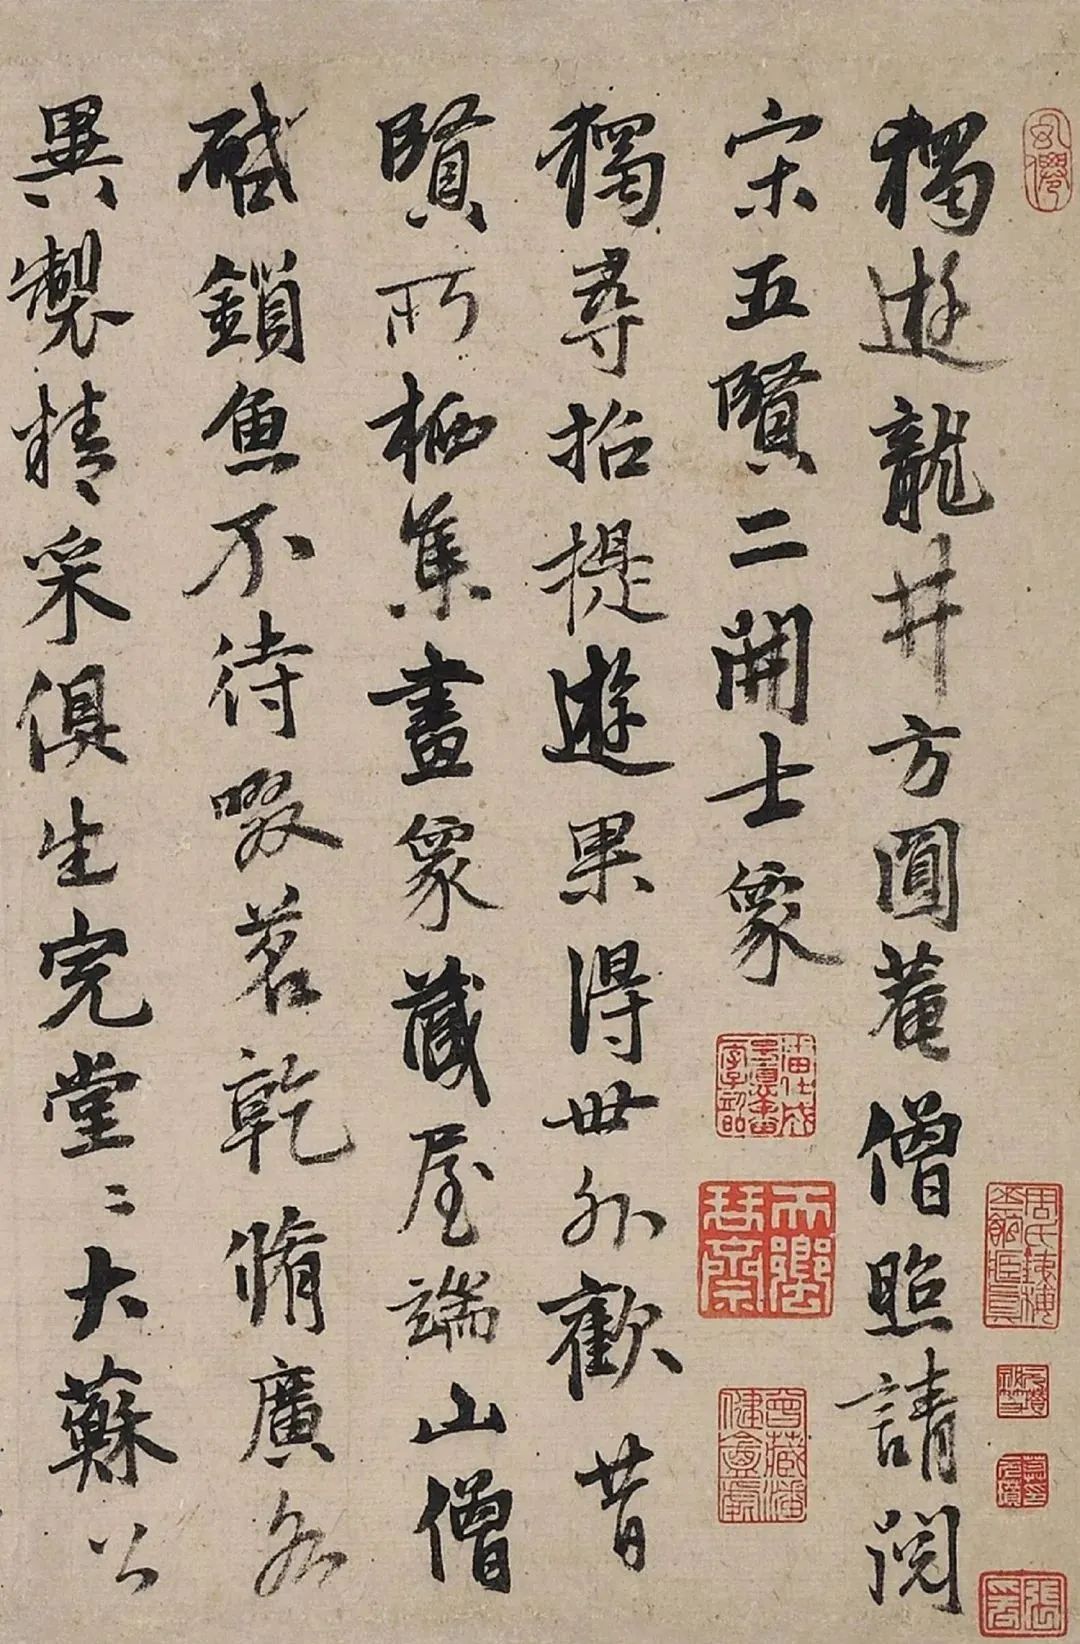 獨遊龍井方圓菴僧照請閱
宋五賢二開士象
獨尋招提遊果得世外歡昔
賢所栖集畫象藏屋端山僧
啟鎖魚不待啜茗乾脩廣各
異製精采俱生完堂〻大蘇公